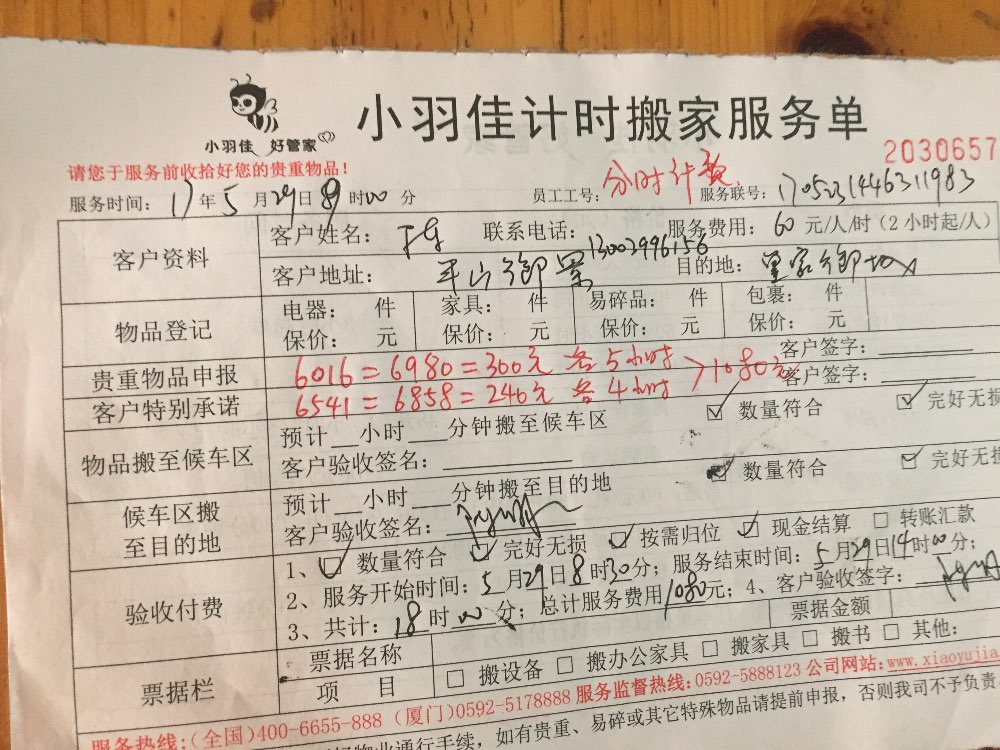 小羽佳 好管家
小羽佳计时搬家服务单
2030657
请您于服务前收拾好您的贵重物品！
服务时间：17年5月29日8时00分 员工工号：分时计费 服务联号：170523144631983
客户资料
客户姓名： 联系电话：13002996156 服务费用：60元/人/时（2小时起/人）
客户地址：半山御景 目的地：皇家御城
物品登记
电器： 件 家具： 件 易碎品： 件 包裹： 件
保价： 元 保价： 元 保价： 元 保价： 元
贵重物品申报 6016=6980=300元 各5小时 >1080元 客户签字：
客户特别承诺 6541=6858=240元 各4小时 客户签字：
物品搬至候车区
预计__小时___分钟搬至候车区 数量符合 完好无损
客户验收签名：
候车区搬至目的地
预计__小时___分钟搬至目的地 数量符合 完好无损
客户验收签名：
验收付费
1、数量符合 完好无损 按需归位 现金结算 转账汇款
2、服务开始时间：5月29日8时30分；服务结束时间：5月29日14时00分；
3、共计：18时00分；总计服务费用1080元；4、客户验收签字：
票据栏
票据名称 票据金额
项 目 搬设备 搬办公家具 搬家具 搬书 其他：
服务热线：（全国）400-6655-888（厦门）0592-5178888 服务监督热线：0592-5888123 公司网站：www.xiaoyujia
物业通行手续，如有贵重、易碎或其它特殊物品请提前申报，否则我司不予负责